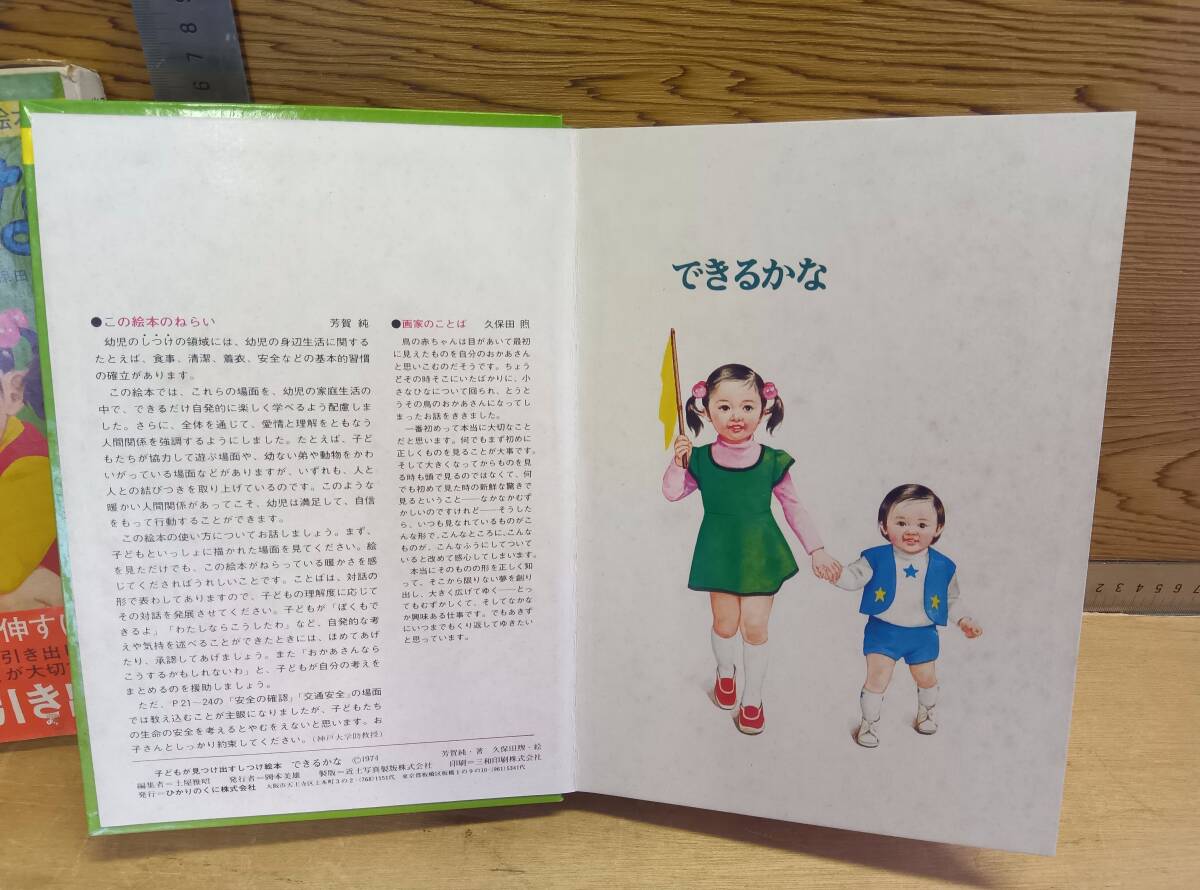 できるかな
●この絵本のねらい 芳賀 純
幼児のしつけの領域には、幼児の身辺生活に関する
たとえば、食事、清潔、着衣、安全などの基本的習慣
の確立があります。
この絵本では、これらの場面を、幼児の家庭生活の
中で、できるだけ自発的に楽しく学べるよう配慮しま
した。さらに、全体を通じて、愛情と理解をともなう
人間関係を強調するようにしました。たとえば、子ど
もたちが協力して遊ぶ場面や、幼ない弟や動物をかわ
いがっている場面などがありますが、いずれも、人と
人との結びつきを取り上げているのです。このような
暖かい人間関係があってこそ、幼児は満足して、自信
をもって行動することができます。
この絵本の使い方についてお話しましょう。まず、
子どもといっしょに描かれた場面を見てください。絵
を見ただけでも、この絵本がねらっている暖かさを感
じてくださればうれしいことです。ことばは、対話の
形で表わしてありますので、子どもの理解度に応じて
その対話を発展させてください。子どもが「ぼくもで
きるよ」「わたしならこうしたわ」など、自発的な考
えや気持を述べることができたときには、ほめてあげ
たり、承認してあげましょう。また「おかあさんなら
こうするかもしれないわ」と、子どもが自分の考えを
まとめるのを援助しましょう。
ただ、P21—24の「安全の確認」「交通安全」の場面
では教え込むことが主眼になりましたが、子どもたち
の生命の安全を考えるとやむをえないと思います。お
子さんとしっかり約束してください。(神戸大学助教授)
●画家のことば 久保田 煦
鳥の赤ちゃんは目があいて最初
に見えたものを自分のおかあさん
と思いこむのだそうです。ちょう
どその時そこにいたばかりに、小
さなひなについて回られ、とうと
うその鳥のおかあさんになってし
まったお話をききました。
一番初めって本当に大切なこと
だと思います。何でもまず初めに
正しくものを見ることが大事です。
そして大きくなってからものを見
る時も頭で見るのではなくて、何
でも初めて見た時の新鮮な驚きで
見るということ——なかなかむず
かしいのですけれど——そうした
ら、いつも見なれているものがこ
んな形で、こんなところに、こんな
ものが、こんなふうにしてついて
いると改めて感心してしまいます。
本当にそのものの形を正しく知
って、そこから限りない夢を創り
出し、大きく広げてゆく——とっ
てもむずかしくて、そしてなかな
か興味ある仕事です。でもあきず
にいつまでもくり返してゆきたい
と思っています。
子どもが見つけ出すしつけ絵本 できるかな ©1974 芳賀純・著 久保田煦・絵
編集者=土屋雅昭 発行者=岡本美雄 製版=近土写真製版株式会社 印刷=三和印刷株式会社
発行=ひかりのくに株式会社 大阪市天王寺区上本町3の2・(768)1151代 東京都板橋区板橋1の9の10・(961)5341代
絵本
保田
伸すし
引き出し
が大切
引き
6 7 8 9
7 6 5 4 3 2